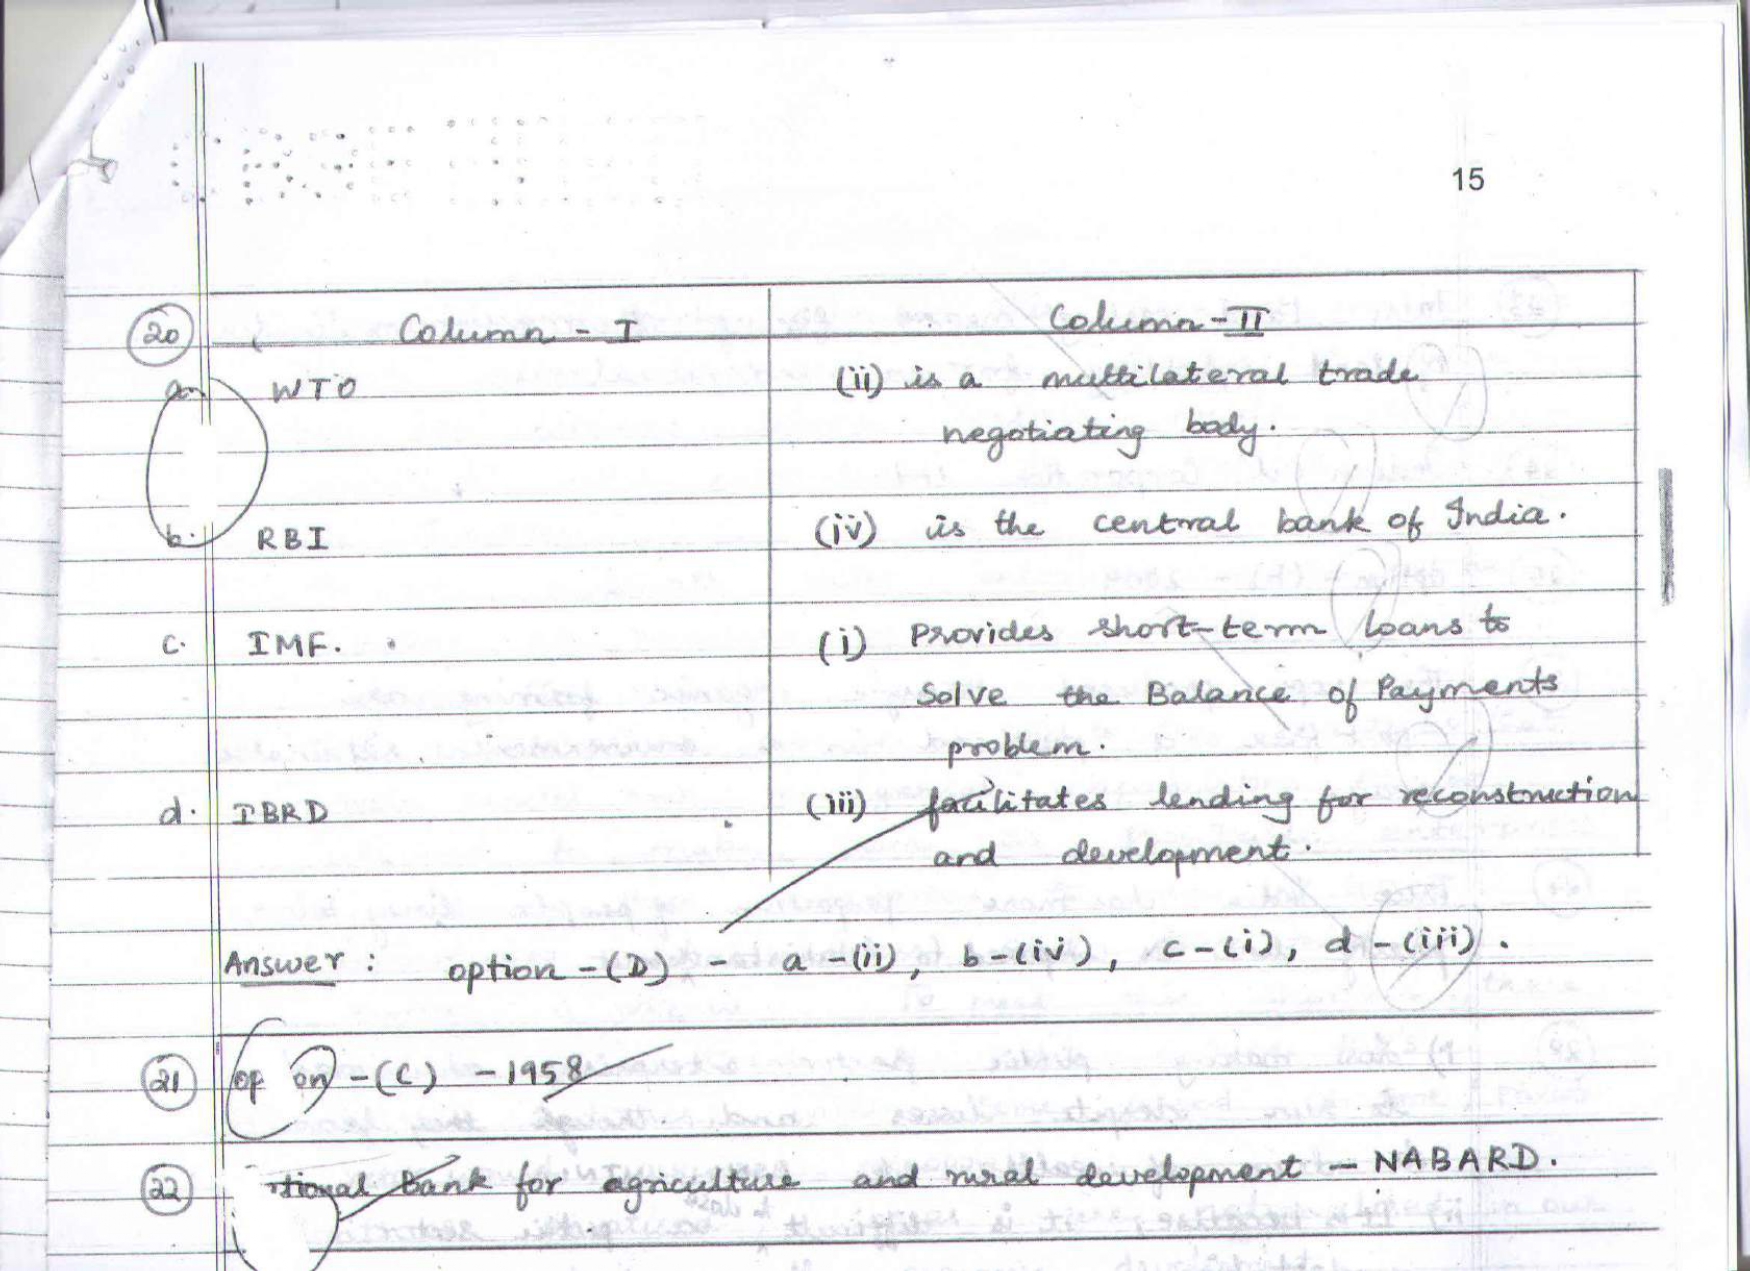 15
20 Column - I Column - II
a. WTO (ii) is a multilateral trade
negotiating body.
b. RBI (iv) is the central bank of India.
c. IMF. (i) Provides short-term loans to
Solve the Balance of Payments
problem.
d. IBRD (iii) facilitates lending for reconstruction
and development.
Answer : option - (D) - a - (ii), b - (iv), c - (i), d - (iii).
21 op on - (C) - 1958
22 tional bank for agriculture and rural development - NABARD.